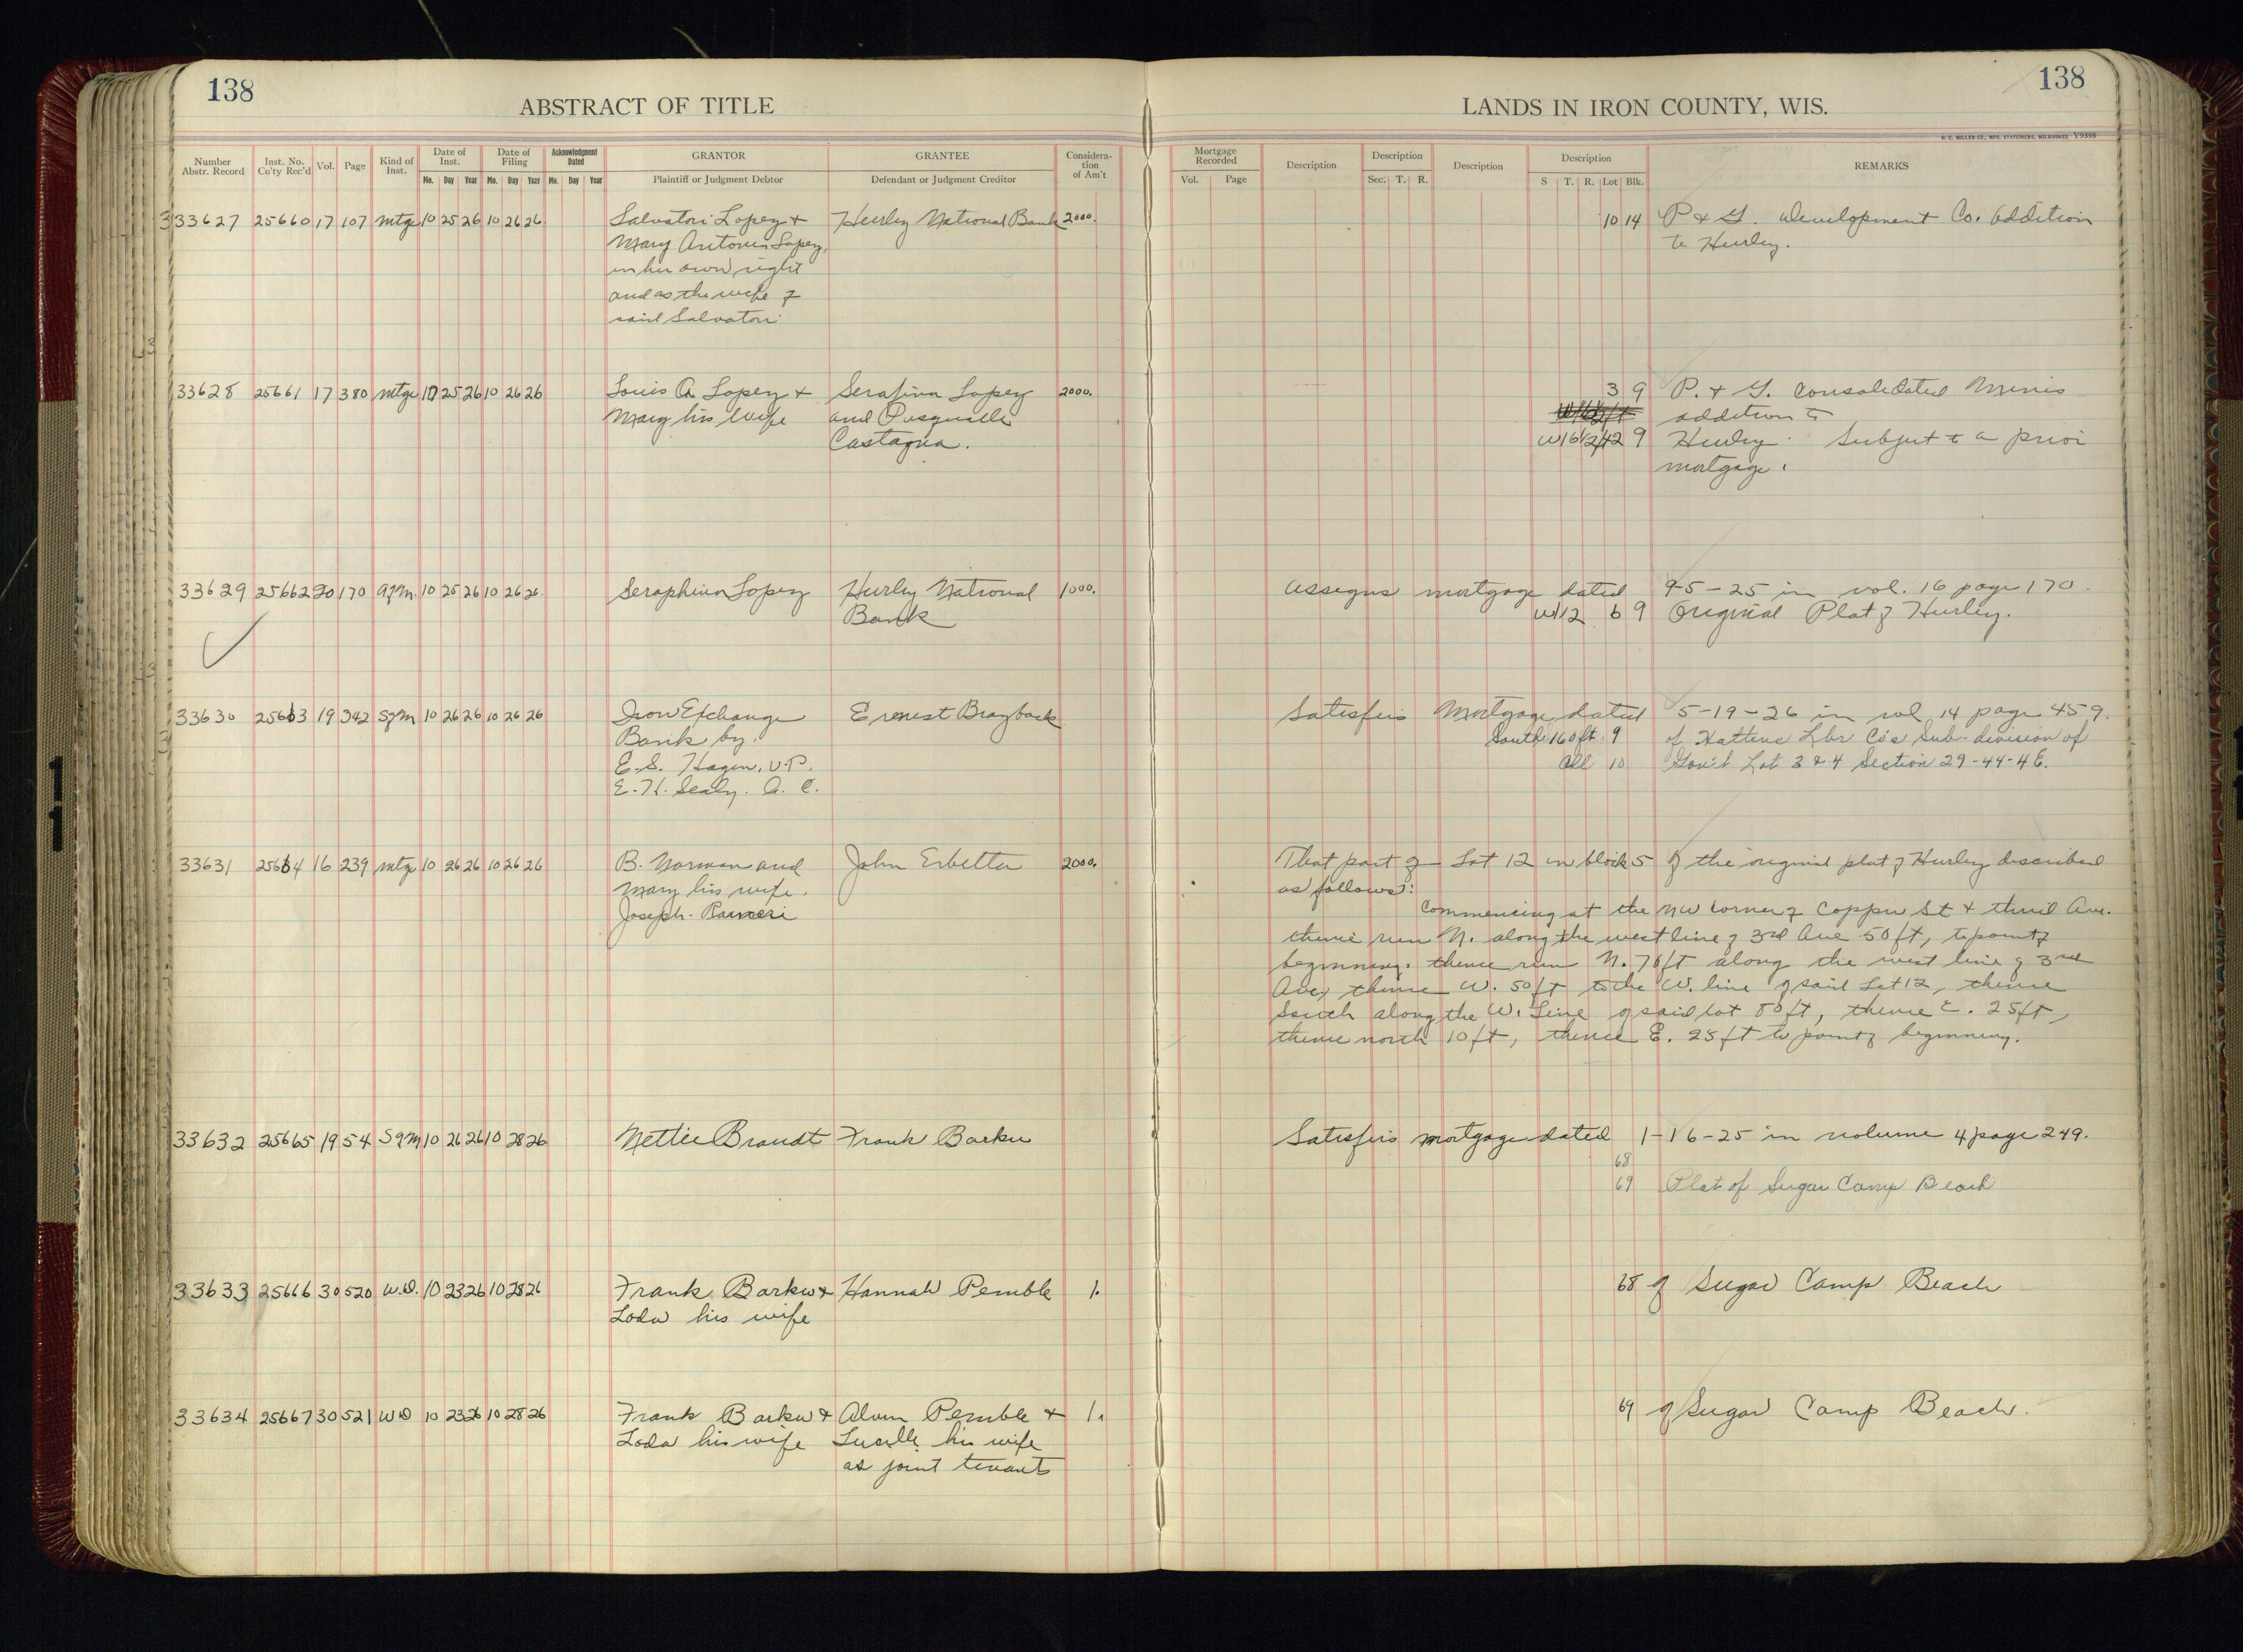 138
138
ABSTRACT OF TITLE
LANDS IN IRON COUNTY, WIS.
H. C. MILLER CO., MFG. STATIONERS, MILWAUKEE Y9398
Number Abstr. Record Inst. No. Co'ty Rec'd Vol. Page Kind of Inst. Date of Inst. Date of Filing Acknowledgment Dated GRANTOR GRANTEE Considera-tion of Am't Mortgage Recorded Dercription Description Description Description REMARKS
Mo. Day Year Mo. Day Year Mo. Day Year Plaintiff or Judgment Debtor Defendant or Judgment Creditor Vol. Page Sec. T. R. S T. R. Lot Blk.
33627 25660 17 107 mtge 10 25 26 10 26 26 Salvatori Lopez + Hurley National Bank 2000. 10 14 P + G. Development Co. Addition
Mary Antonia Lopez, to Hurley.
in her own right
and as the wife of
said Salvatori
33628 25661 17 380 mtge 10 25 26 10 26 26 Louis A Lopez + Serafina Lopez 2000. 3 9 P. + G. Consolidated Mines
Mary his wife and Pasquale addition to
Castagna. W16 1/2 ft 2 9 Hurley. Subject to a prior
mortgage.
33629 25662 20 170 agm. 10 25 26 10 26 26 Seraphina Lopez Hurley National 1000. Assigns mortgage dated 9-5-25 in vol. 16 page 170.
Bank W1/2 6 9 Original Plat of Hurley.
33630 25663 19 342 Sgm 10 26 26 10 26 26 Iron Exchange Ernest Brayback Satisfies Mortgage dated 5-19-26 in vol 14 page 459.
Bank by. South 160 ft 9 of Hattens Lbr Co's Sub-division of
E. S. Hagen, V.P. All 10 Gov't Lot 3 & 4 Section 29-44-4E.
E. H. Sealy. A. C.
33631 25664 16 239 mtge 10 26 26 10 26 26 B. Norman and John Erbetta 2000. That part of Lot 12 in block 5 of the original plat of Hurley described
Mary his wife. as follows:
Joseph Raineri Commencing at the NW corner of Copper St + third Ave.
thence run N. along the west line of 3rd Ave 50 ft, to point of
beginning. thence run N. 70 ft along the west line of 3rd
Ave, thence W. 50 ft to the W. line of said Lot 12, thence
South along the W. Line of said lot 80 ft, thence E. 25 ft,
thence north 10 ft, thence E. 25 ft to point of beginning.
33632 25665 19 54 Sgm 10 26 26 10 28 26 Nettie Brandt Frank Barku Satisfies mortgage dated 1-16-25 in volume 4 page 249.
68
69 Plat of Sugar Camp Beach
33633 25666 30 520 W.D. 10 23 26 10 28 26 Frank Barku + Hannah Pemble 1. 68 of Sugar Camp Beach
Loda his wife
33634 25667 30 521 WD 10 23 26 10 28 26 Frank Barku + Alvin Pemble + 1. 69 of Sugar Camp Beach.
Loda his wife Lucille his wife
as joint tenants